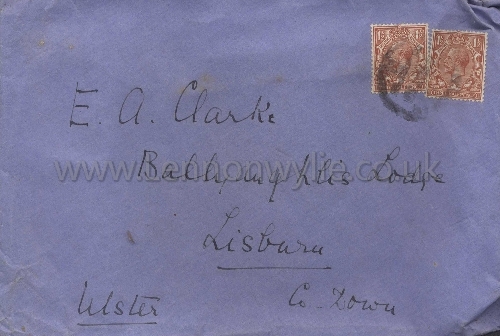 E. A. Clarke
www.lennonwylie.co.uk
Lodge
Lisburn
Ulster
Co. Down